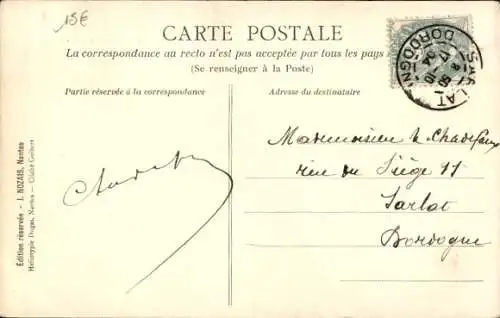 15E
CARTE POSTALE
La correspondance au recto n'est pas acceptée par tous les pays
(Se renseigner à la Poste)
SARLAT
DORDOGNE
Partie réservée à la correspondance
Adresse du destinataire
Mademoiselle Chadefaux
rue du Siège 11
Sarlat
Dordogne
Edition réservée - J. NOZAIS, Nantes
Heliotypie Dugas, Nantes - Cliché Guibert